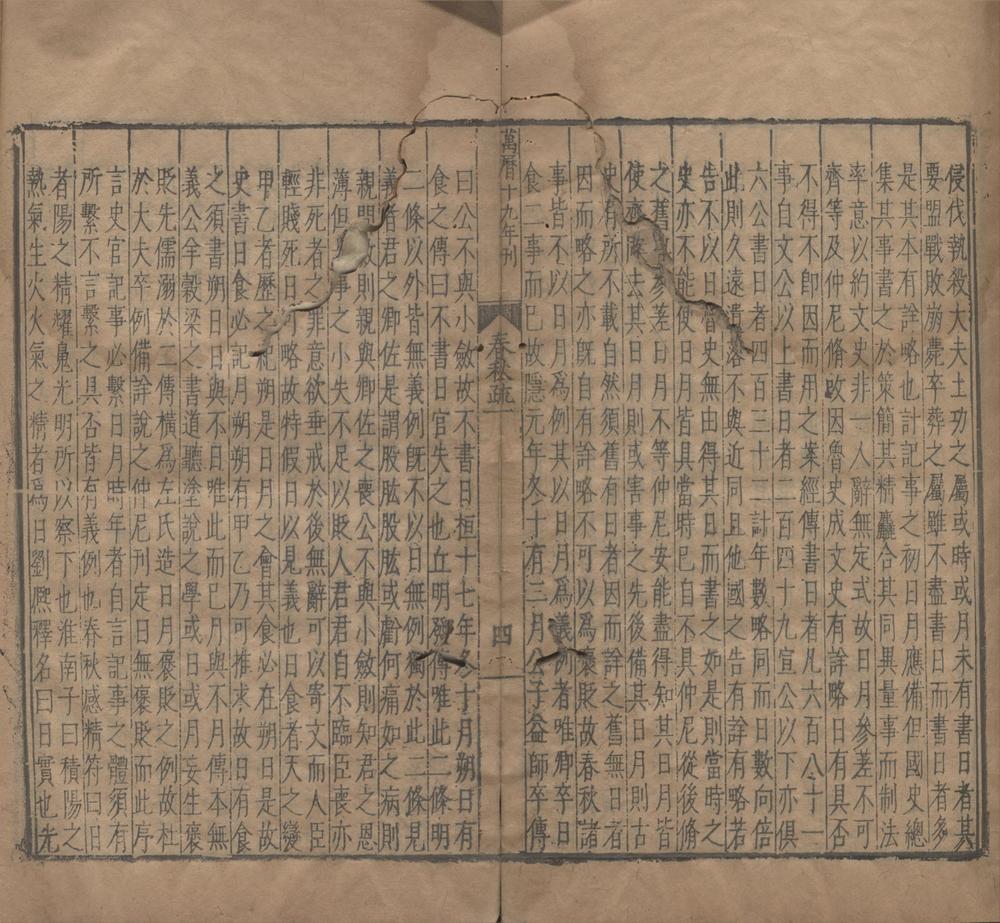 侵伐執殺大夫土功之屬或時或月未有書日者其
要盟戰敗崩薨卒葬之屬雖不盡書日而書日者多
是其本有詮略也計記事之初日月應備但國史總
集其事書之於策簡其精麤合其同異量事而制法
率意以約文史非一人辭無定式故日月參差不可
齊等及仲尼脩故因魯史成文史有詳略日有具否
不得不即因而用之案經傳書日者凡六百八十一
事自文公以上書日者二百四十九宣公以下亦俱
六公書日者四百三十二計年數略同而日數向倍
此則久遠遺落不與近同且他國之告有詳有略若
告不以日魯史無由得其日而書之如是則當時之
史亦不能使日月皆具當時已自不具仲尼從後脩
之舊參差日月不等仲尼安能盡得知其日月皆
使齊去其日月則或害事之先後備其日月則古
史有所不載自然須舊有日者因而詳之舊無日者
因而略之亦既自有詳略不可以為褒貶故春秋諸
事皆不以日月爲例其以日月爲義例者唯卿卒日
食二事而已故隱元年冬十有二月公子益師卒傳
萬曆十九年刊
春秋疏
四
曰公不與小斂故不書日桓十七年冬十月朔日有
食之傳曰不書日官失之也丘明發傳唯此二條明
二條以外皆無義例既不以日無例獨於此二條見
義者君之卿佐是謂股肱股肱或虧何痛如之病則
親問斂則親與卿佐之喪公不與小斂則知君之恩
薄但是事之小失不足以貶人君君自不臨臣喪亦
非死者之罪意欲垂戒於後無辭可以寄文而人臣
輕賤死日可略故特假日以見義也日食者天之變
甲乙者歷之紀朔是日月之會其食必在朔日是故
史書日食必記月朔朔有甲乙乃可推求故日有食
之須書朔日日與不日唯此而已月與不月傳本無
義公羊穀梁之書道聽塗說之學或日或月妄生褒
貶先儒溺於二傳橫為左氏造日月褒貶之例故杜
於大夫卒例備詳說之仲尼刊定日無褒貶而此序
言史官記事必繫日月時年者自言記事之體須有
所繫不言繫之具否皆有義例也春秋感精符曰日
者陽之精耀魄光明所以察下也淮南子曰積陽之
熱氣生火火氣之精者爲日劉熙釋名曰日實也光